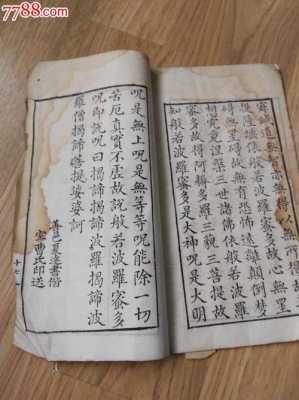 7788.com
集滅道無智亦無得
提薩埵依般若波羅蜜多故心無罣
礙無罣礙故無有恐怖遠離顛倒夢
想究竟涅槃三世諸佛依般若波羅
蜜多故得阿耨多羅三藐三菩提故
知般若波羅蜜多是大神呪是大明
呪是無上呪是無等等呪能除一切
苦厄真實不虛故說般若波羅蜜多
呪即說呪曰揭諦揭諦波羅揭諦波
羅僧揭諦菩提娑婆訶
善邑夏逢書偕
室曹氏印送
十七